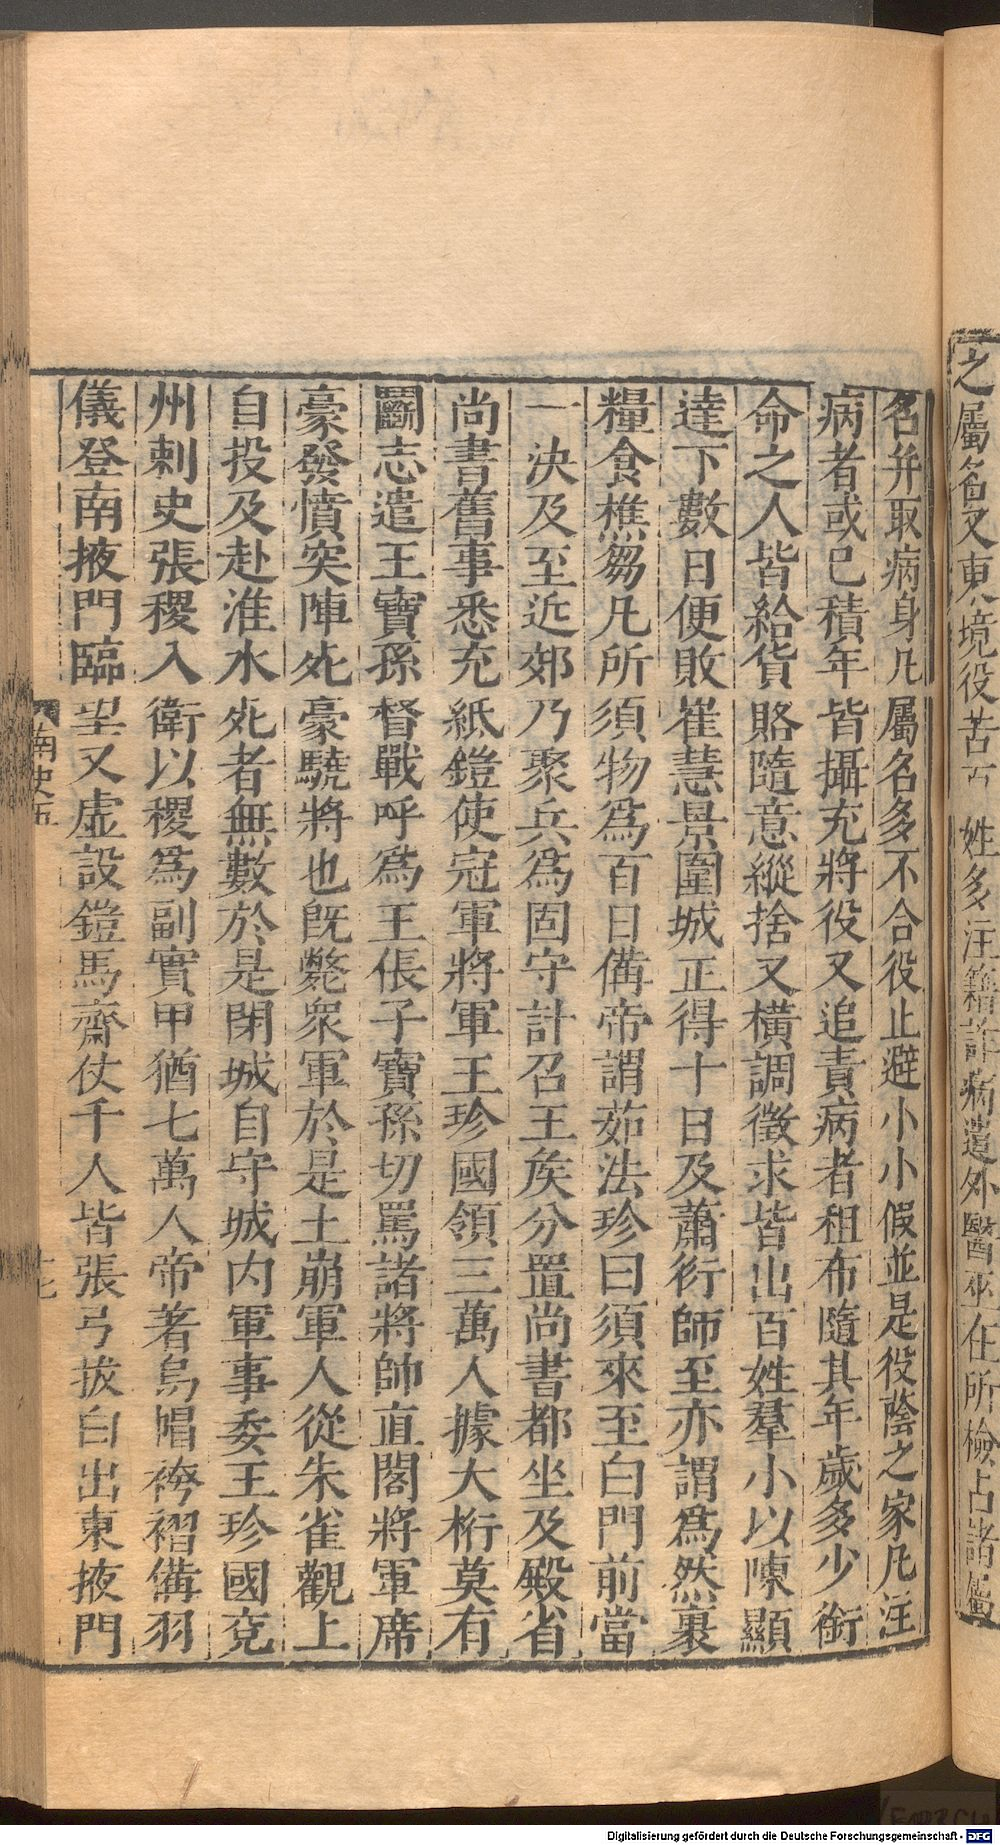 之屬名又東境役苦百姓多注籍詐病遣外醫巫在所檢占諸屬
名并取病身凡屬名多不合役止避小小假並是役蔭之家凡注
病者或已積年皆攝充將役又追責病者租布隨其年歲多少銜
命之人皆給貨賂隨意縱捨又橫調徵求皆出百姓羣小以陳顯
達下數日便敗崔慧景圍城正得十日及蕭衍師至亦謂爲然裹
糧食樵芻凡所須物爲百日備帝謂茹法珍曰須來至白門前當
一決及至近郊乃聚兵爲固守計召王侯分置尚書都坐及殿省
尚書舊事悉充紙鎧使冠軍將軍王珍國領三萬人據大桁莫有
鬭志遣王寶孫督戰呼爲王倀子寶孫切罵諸將帥直閣將軍席
豪發憤突陣死豪驍將也旣斃衆軍於是土崩軍人從朱雀觀上
自投及赴淮水死者無數於是閉城自守城內軍事委王珍國兗
州刺史張稷入衛以稷爲副實甲猶七萬人帝著烏帽袴褶備羽
儀登南掖門臨望又虛設鎧馬齋仗千人皆張弓拔白出東掖門
南史五
十七
Digitalisierung gefördert durch die Deutsche Forschungsgemeinschaft - DFG